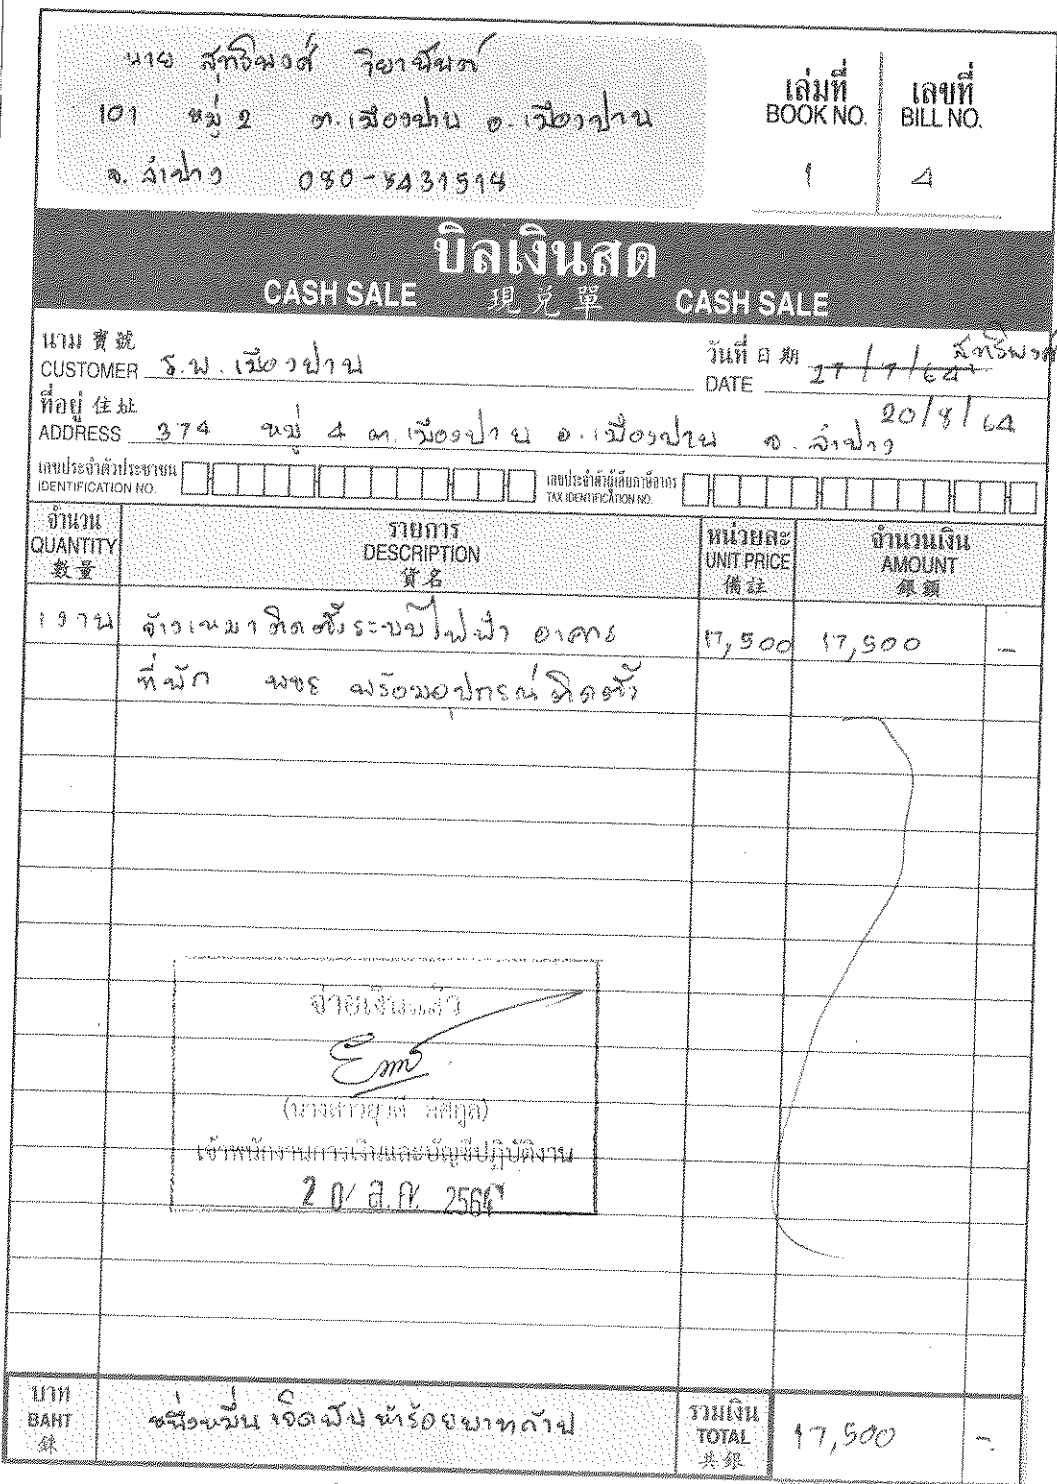 นาย สุทธิพงศ์ วิยานันท์
101 หมู่ 2 ต.เมืองปาน อ.เมืองปาน
จ. ลำปาง 080-8431514
เล่มที่
BOOK NO.
1
เลขที่
BILL NO.
4
บิลเงินสด
CASH SALE 現兌單 CASH SALE
นาม 寶號
CUSTOMER ร.พ. เมืองปาน
วันที่ 日期
DATE 27/7/64 สุทธิพงศ์
20/8/64
ที่อยู่ 住址
ADDRESS 374 หมู่ 4 ต.เมืองปาน อ.เมืองปาน จ. ลำปาง
เลขประจำตัวประชาชน
IDENTIFICATION NO.
เลขประจำตัวผู้เสียภาษีอากร
TAX IDENTIFICATION NO.
จำนวน
QUANTITY
數量
รายการ
DESCRIPTION
貨名
หน่วยละ
UNIT PRICE
備註
จำนวนเงิน
AMOUNT
銀額
1 งาน จ้างเหมาติดตั้งระบบไฟฟ้า อาคาร 17,500 17,500 -
ที่พัก พขร พร้อมอุปกรณ์ติดตั้ง
จ่ายเงินแล้ว
เจ้าพนักงานการเงินและบัญชีปฏิบัติงาน
20 ส.ค. 2564
บาท
BAHT
銖
หนึ่งหมื่นเจ็ดพันห้าร้อยบาทถ้วน
รวมเงิน
TOTAL
共銀
17,500 -